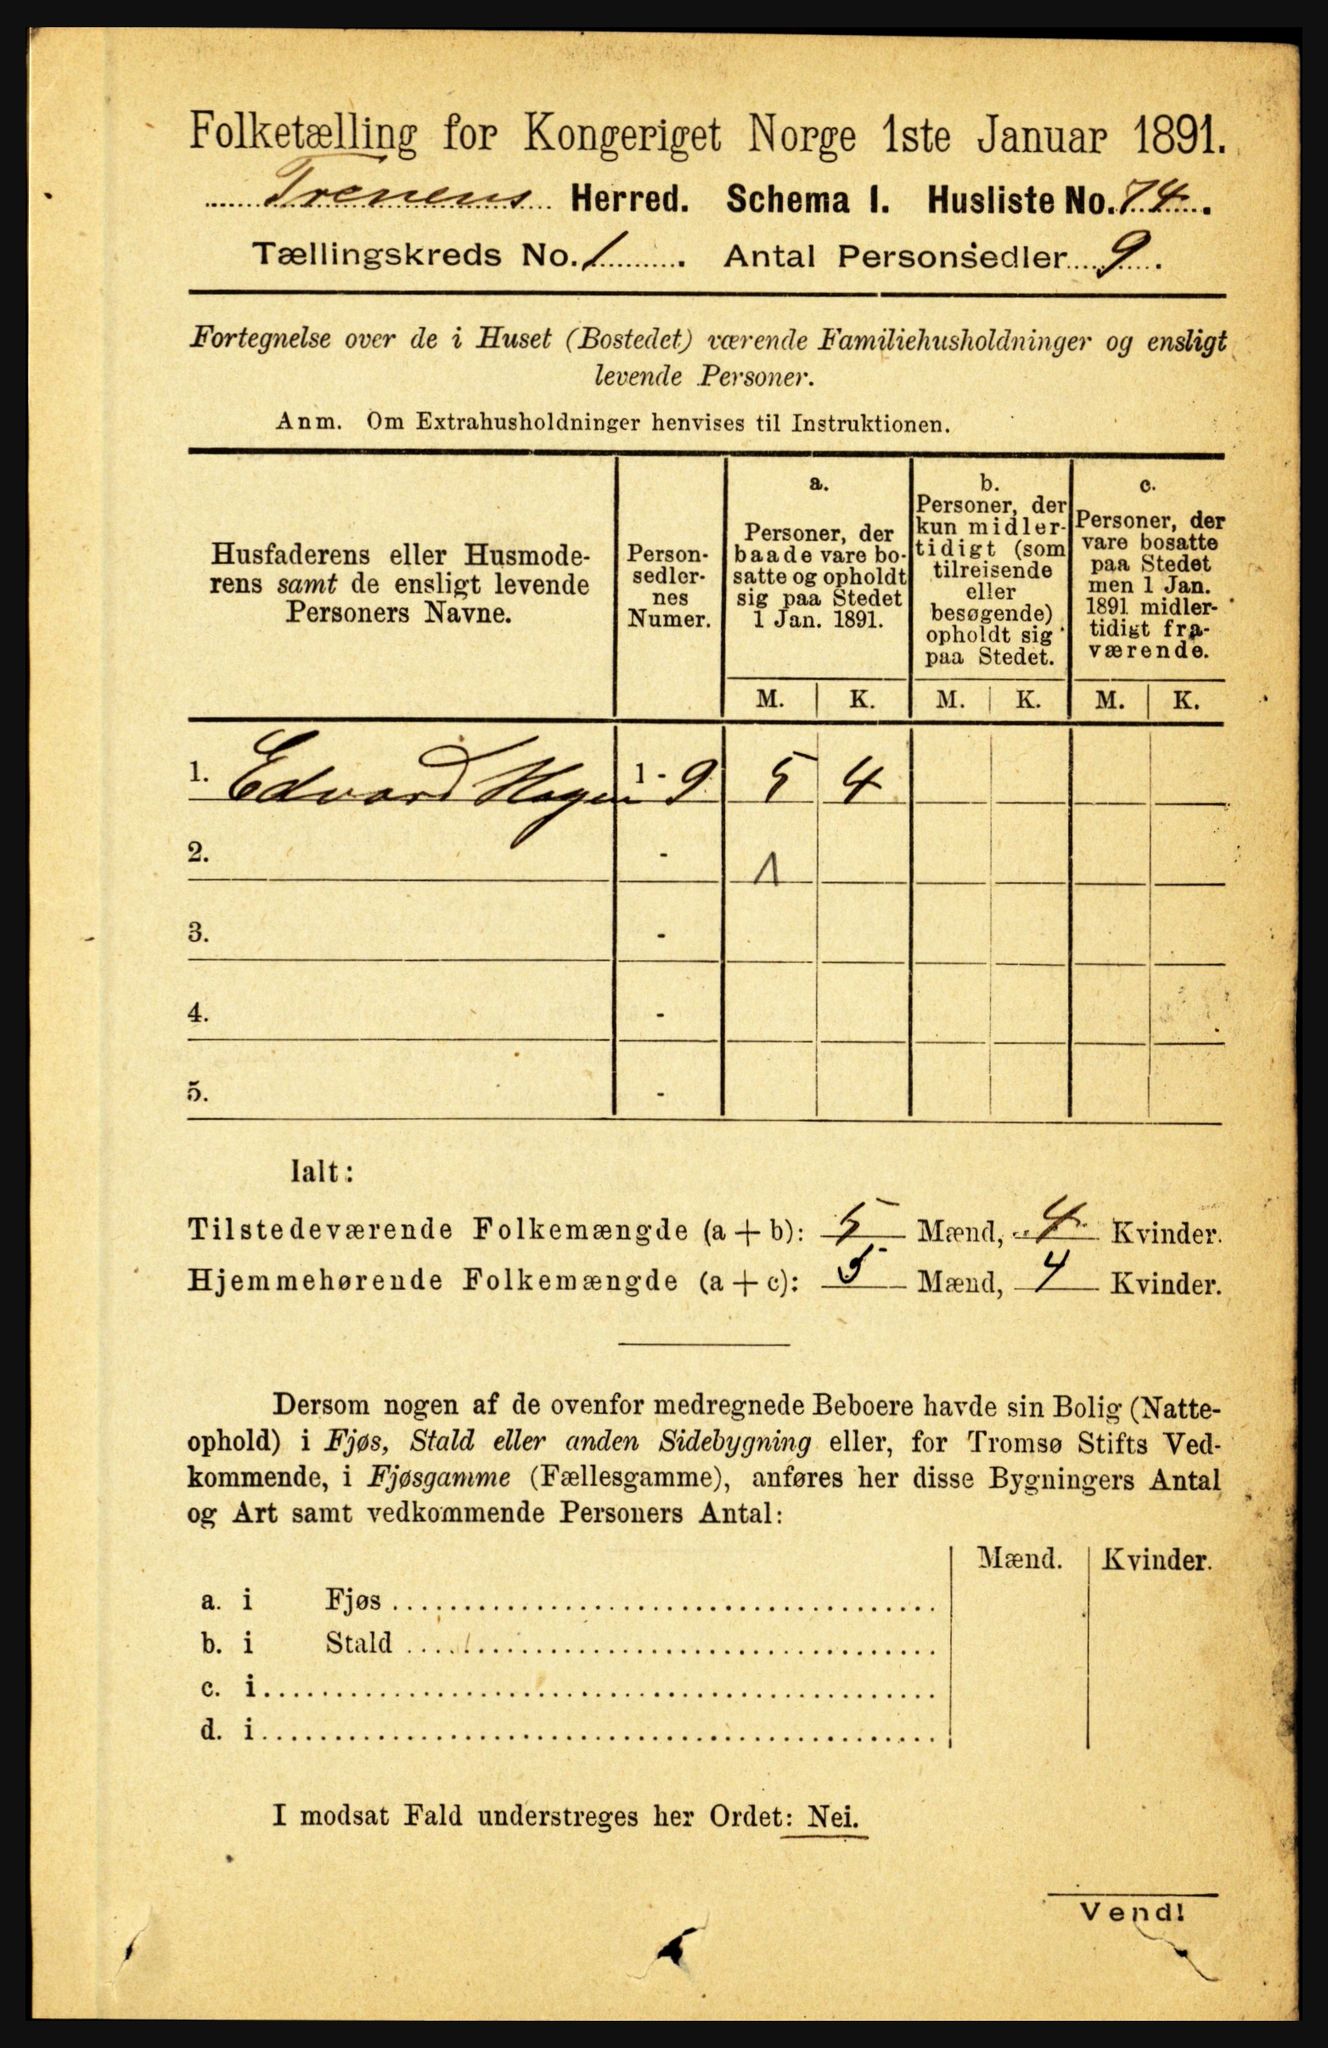 Folketælling for Kongeriget Norge 1ste Januar 1891.
Trenens Herred. Schema I. Husliste No. 74.
Tællingskreds No. 1. Antal Personsedler 9.
Fortegnelse over de i Huset (Bostedet) værende Familiehusholdninger og ensligt
levende Personer.
Anm. Om Extrahusholdninger henvises til Instruktionen.
Husfaderens eller Husmode-
rens samt de ensligt levende
Personers Navne.
Person-
sedler-
nes
Numer.
a.
Personer, der
baade vare bo-
satte og opholdt
sig paa Stedet
1 Jan. 1891.
b.
Personer, der
kun midler-
tidigt (som
tilreisende
eller
besøgende)
opholdt sig
paa Stedet.
c.
Personer, der
vare bosatte
paa Stedet
men 1 Jan.
1891 midler-
tidigt fra-
værende.
M. K. M. K. M. K.
1. Edvard Hagen 1 - 9 5 4
2. - 1
3. -
4. -
5. -
Ialt:
Tilstedeværende Folkemængde (a + b): 5 Mænd, 4 Kvinder.
Hjemmehørende Folkemængde (a + c): 5 Mænd, 4 Kvinder.
Dersom nogen af de ovenfor medregnede Beboere havde sin Bolig (Natte-
ophold) i Fjøs, Stald eller anden Sidebygning eller, for Tromsø Stifts Ved-
kommende, i Fjøsgamme (Fællesgamme), anføres her disse Bygningers Antal
og Art samt vedkommende Personers Antal:
Mænd. Kvinder.
a. i Fjøs
b. i Stald
c. i
d. i
I modsat Fald understreges her Ordet: Nei.
Vend!